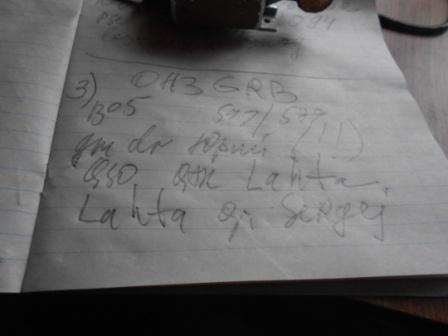 3) OH3GRB
1305 597/579
gm dr Юрий (!!)
QSO QTH Lahta.
Lahta Op Sergej